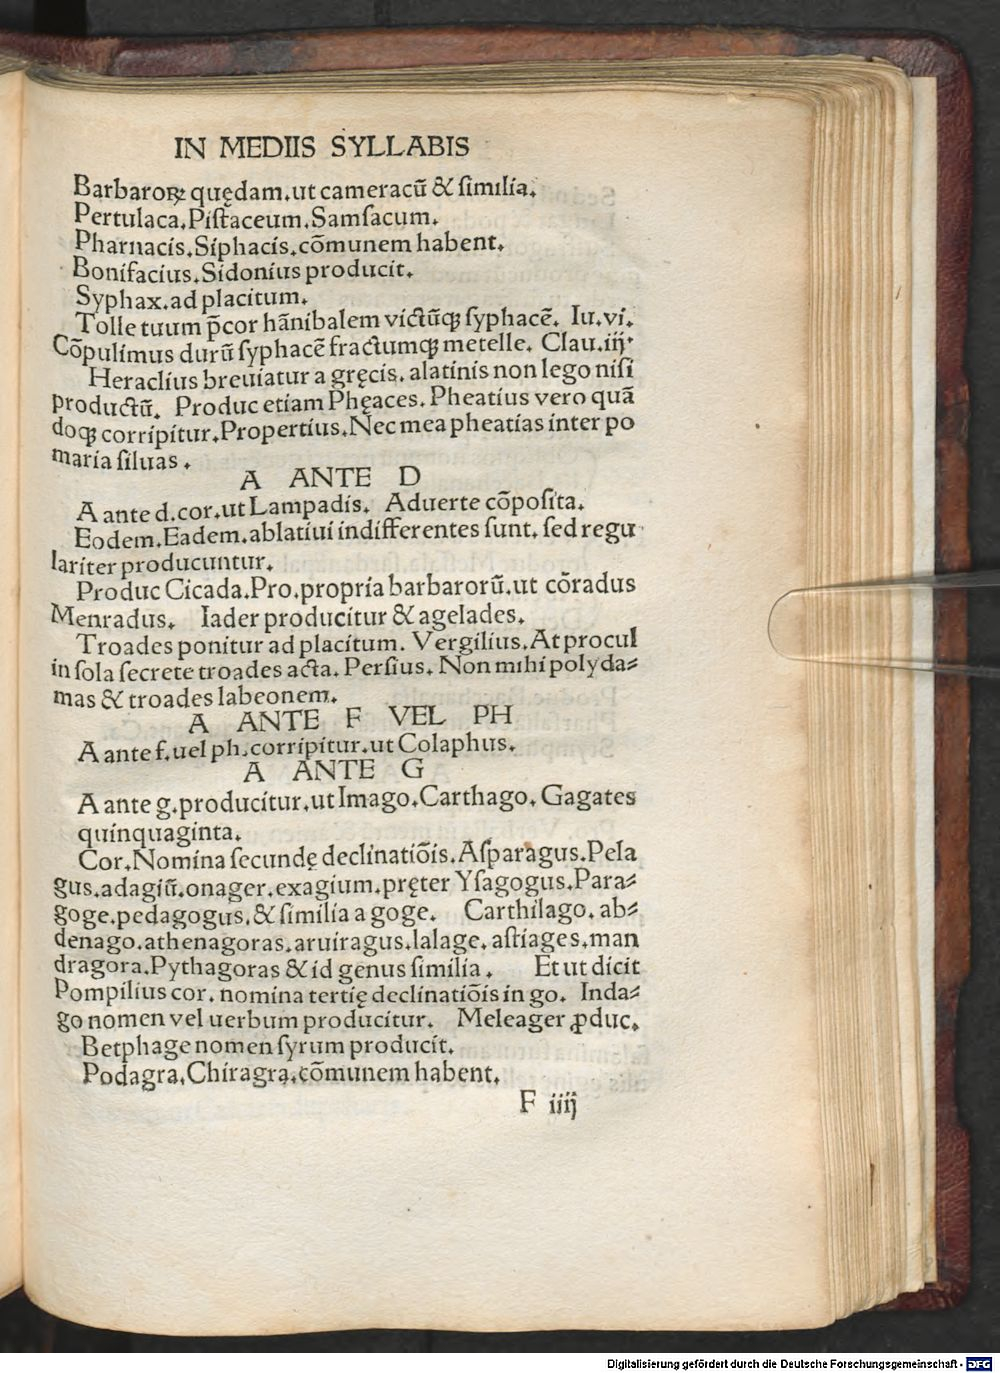 IN MEDIIS SYLLABIS
Barbaroꝝ quędam.ut cameracū & ſimilia.
Pertulaca.Piſtaceum.Samſacum.
Pharnacis.Siphacis.cōmunem habent.
Bonifacius.Sidonius producit.
Syphax.ad placitum.
Tolle tuum p̄cor hānibalem victūqꝫ ſyphacē. Iu.vi.
Cōpulimus durū ſyphacē fractumqꝫ metelle. Clau.iij.
Heraclius breuiatur a gręcis.alatinis non lego niſi
productū. Produc etiam Phęaces.Pheatius vero quā
doqꝫ corripitur.Propertius.Nec mea pheatias inter po
maria ſiluas.
A ANTE D
A ante d.cor.ut Lampadis. Aduerte cōpoſita.
Eodem.Eadem.ablatiui indifferentes ſunt.ſed regu
lariter producuntur.
Produc Cicada.Pro.propria barbarorū.ut cōradus
Menradus. Iader producitur & agelades.
Troades ponitur ad placitum. Vergilius.At procul
in ſola ſecrete troades acta.Perſius.Non mihi polyda⸗
mas & troades labeonem.
A ANTE F VEL PH
A ante f.uel ph.corripitur.ut Colaphus.
A ANTE G
A ante g.producitur.ut Imago.Carthago.Gagates
quinquaginta.
Cor.Nomina ſecundę declinatiōis.Aſparagus.Pela
gus.adagiū.onager.exagium.pręter Yſagogus.Para⸗
goge.pedagogus.& ſimilia a goge. Carthilago.ab⸗
denago.athenagoras.aruiragus.lalage.aſtiages.man
dragora.Pythagoras & id genus ſimilia. Et ut dicit
Pompilius cor.nomina tertię declinatiōis in go. Inda⸗
go nomen vel uerbum producitur. Meleager ꝓduc.
Betphage nomen ſyrum producit.
Podagra.Chiragra.cōmunem habent.
F iiij
Digitalisierung gefördert durch die Deutsche Forschungsgemeinschaft - DFG